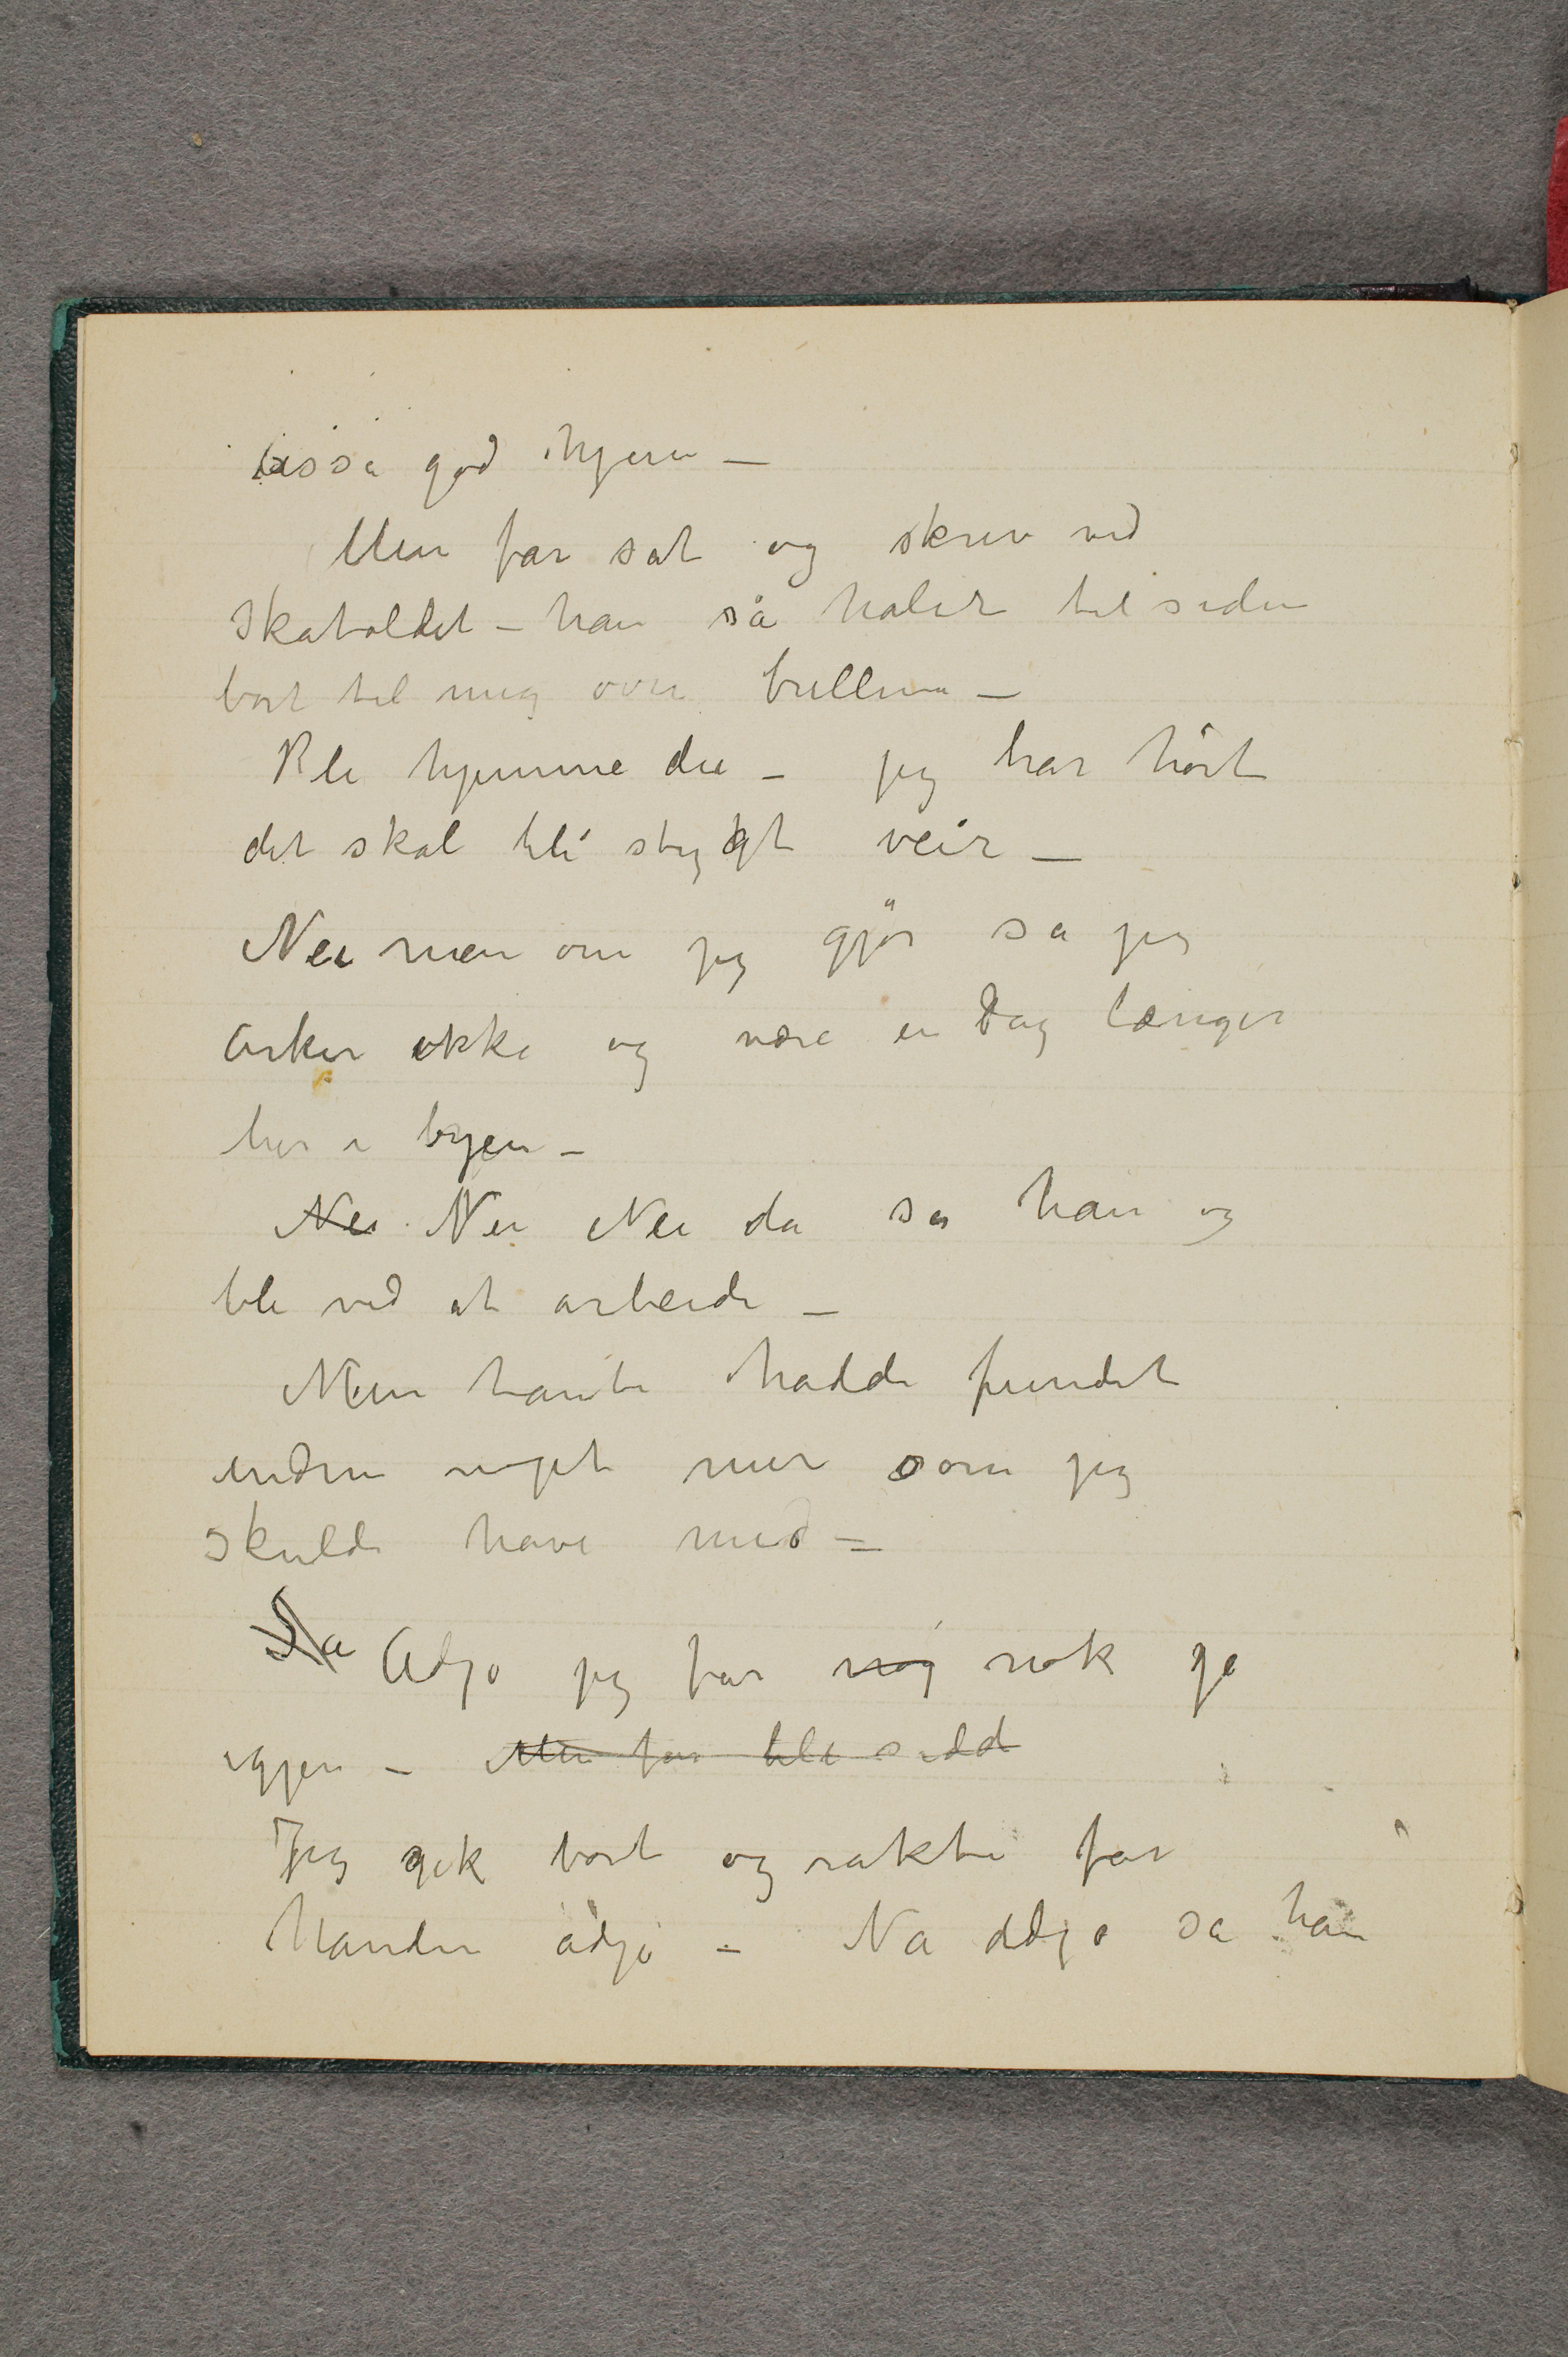 også god hjem –
Men far sat og skrev ved
skatoldet – han så halvt til siden
bort til mig over brillerne –
Bli hjemme du – jeg har hört
det skal bli stygt veir –
Nei men om jeg gjör sa jeg
ørker ikke og være en dag længer
her i byen –
Nei Nei Nei da sa han og
ble ved at arbeide –
Men tante hadde fundet
endnu noget mer som jeg
skulde have med –
Da Adjø jeg far nog nok gå
igjen – Men far ble sidd
Jeg gik bort og rakte far
Handen adjø – Na adjø sa han